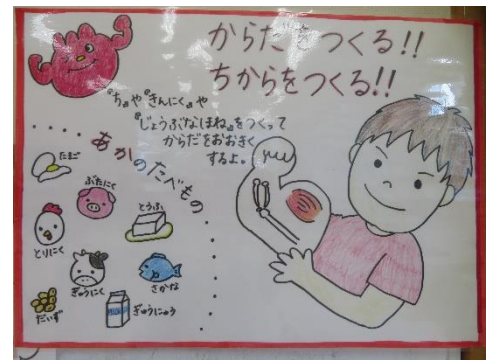 からだをつくる!!
ちからをつくる!!
『ち』や『きんにく』や
『じょうぶなほね』をつくって
からだをおおきく
するよ。
あかのたべもの
たまご
ぶたにく
とうふ
とりにく
ぎゅうにく
さかな
だいず
ぎゅうにゅう